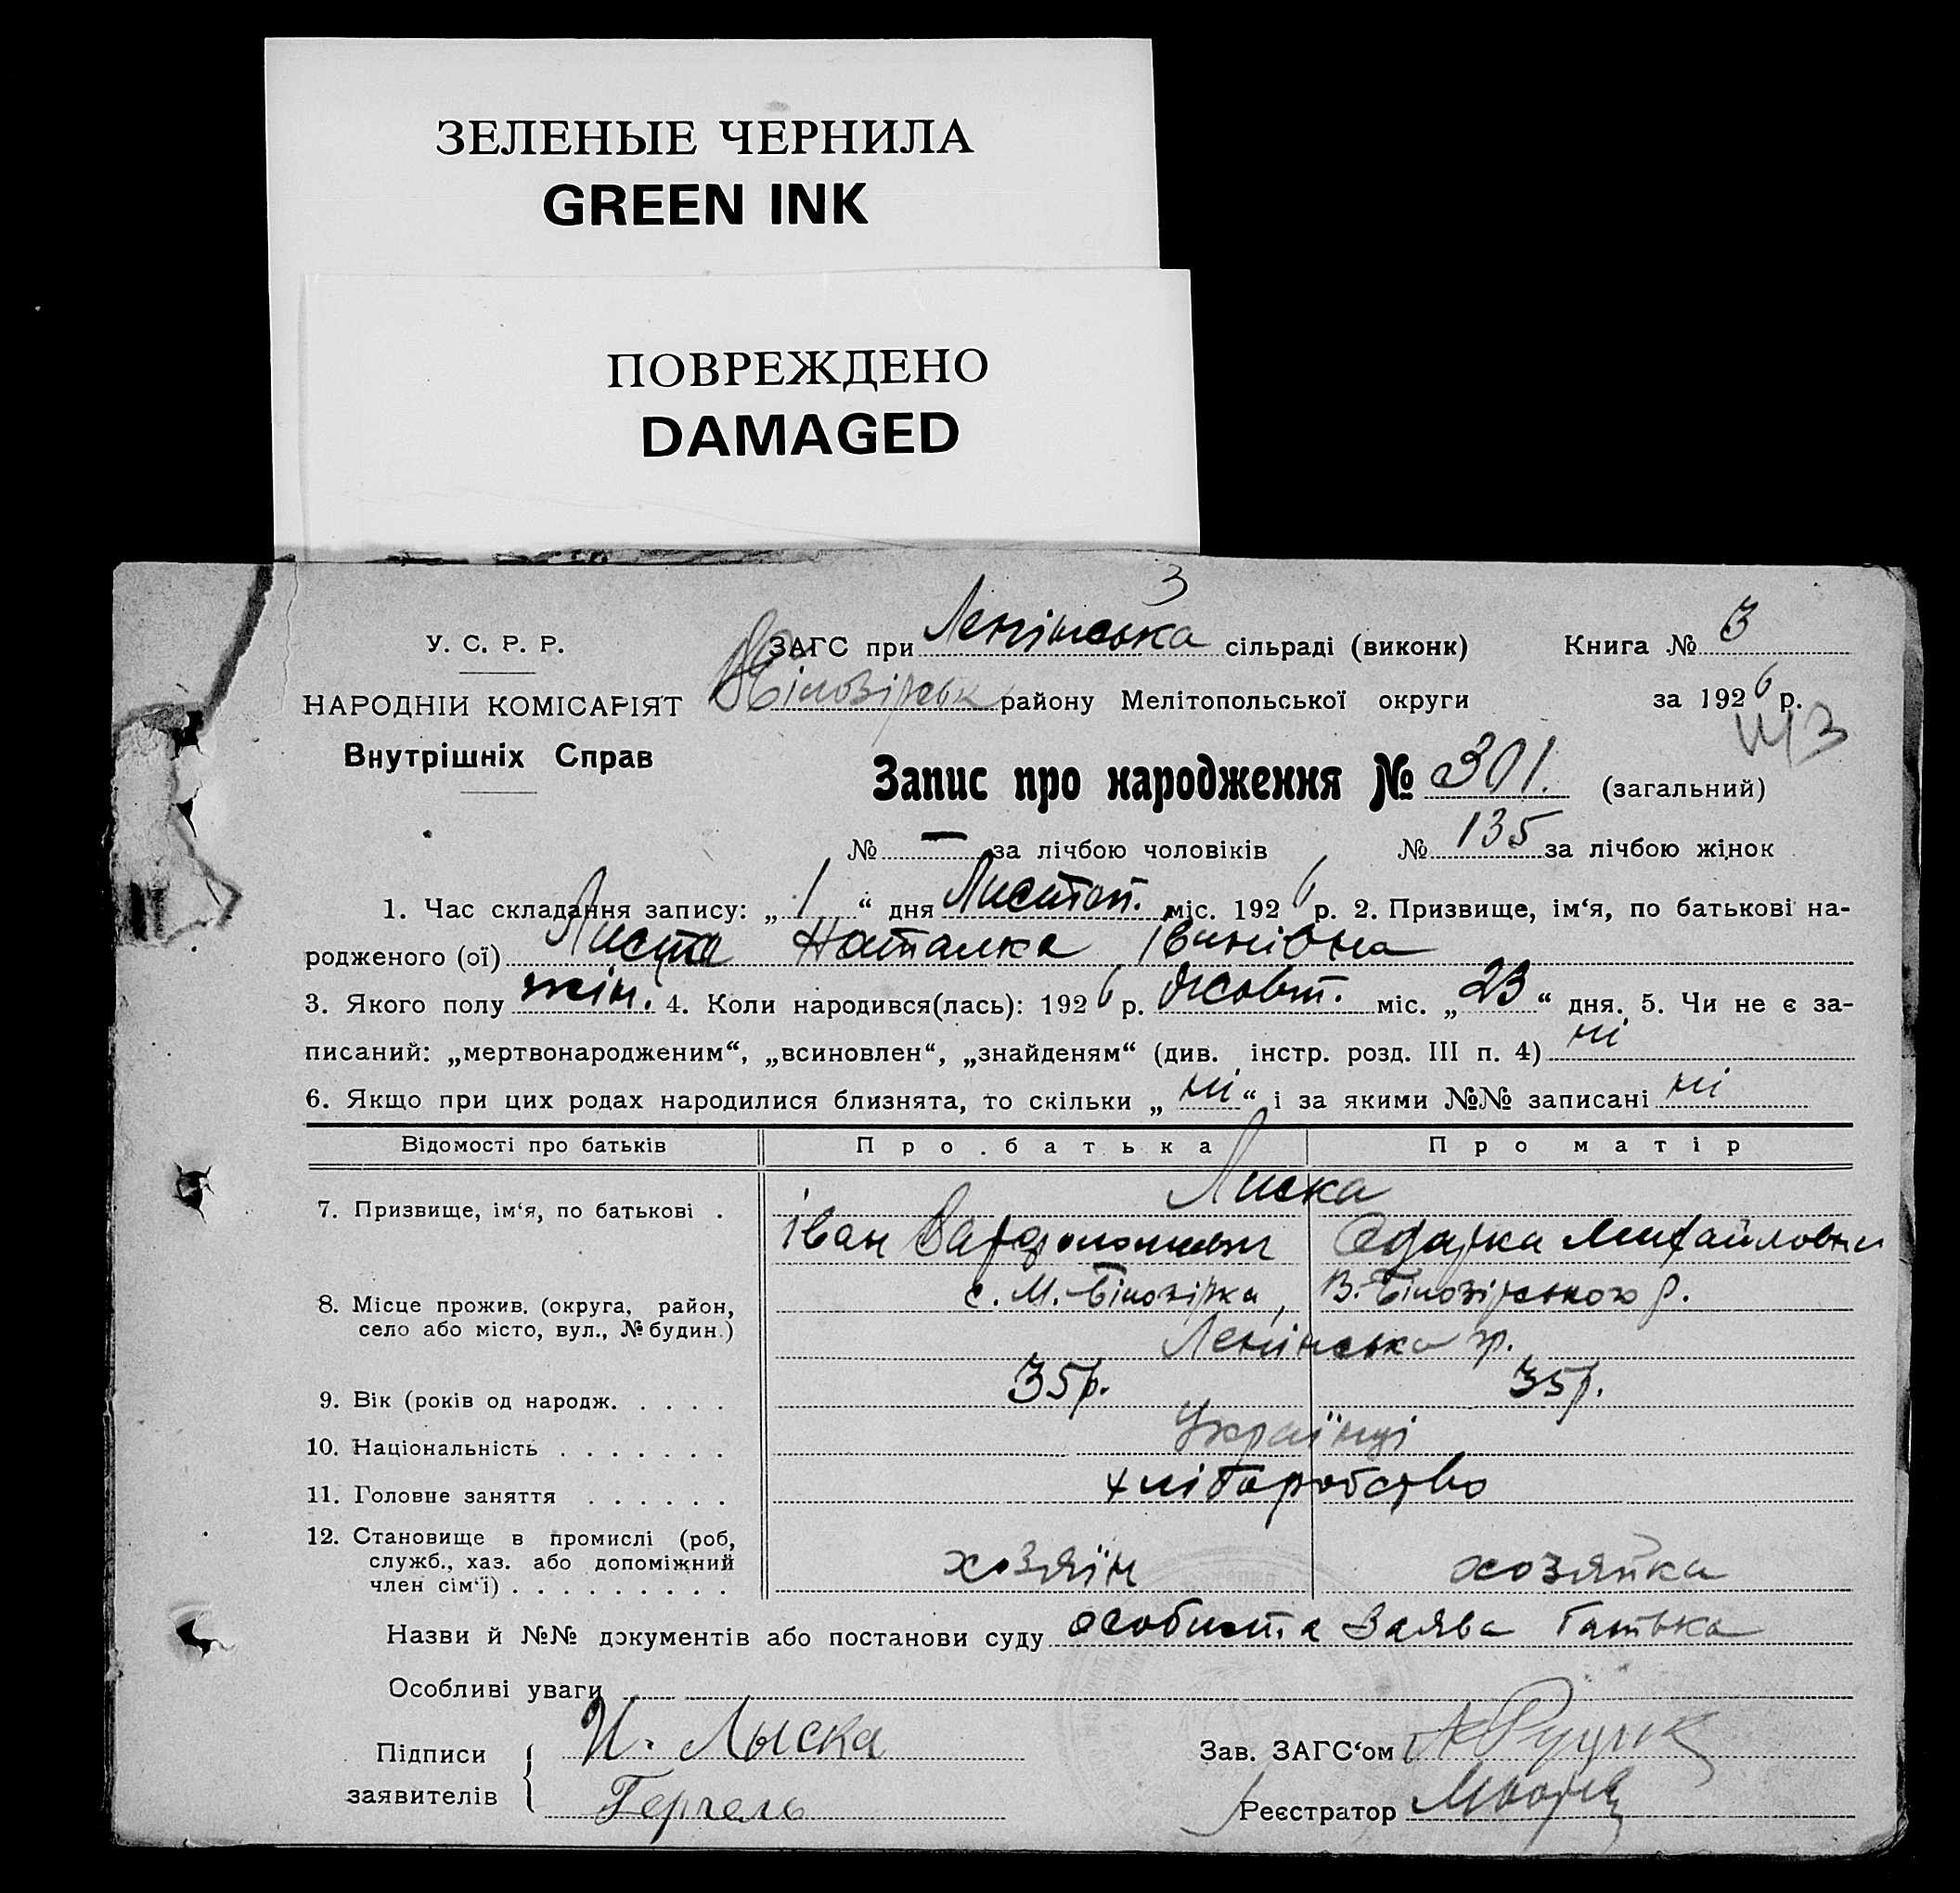 ЗЕЛЕНЫЕ ЧЕРНИЛА
GREEN INK
ПОВРЕЖДЕНО
DAMAGED
3
У. С. Р. Р.
НАРОДНІЙ КОМІСАРІЯТ
Внутрішніх Справ
ЗАГС при Ленінська сільраді (виконк) Книга № 3
Білозірськ району Мелітопольської округи за 1926 р.
Запис про народження № 301. (загальний)
№ — за лічбою чоловіків № 135 за лічбою жінок
1. Час складання запису: „ 1 “ дня Листоп. міс. 1926 р. 2. Призвище, ім‘я, по батькові на-
родженого (ої) Наталка Іванівна
3. Якого полу жін. 4. Коли народився(лась): 1926 р. Жовт. міс. „ 23 “ дня. 5. Чи не є за-
писаний: „мертвонародженим“, „всиновлен“, „знайденям“ (див. інстр. розд. III п. 4) ні
6. Якщо при цих родах народилися близнята, то скільки „ ні “ і за якими №№ записані ні
Відомості про батьків Про батька Про матір
7. Призвище, ім‘я, по батькові . Лиска
Іван Варфоломеевич Одарка Михайловна
8. Місце прожив. (округа, район,
село або місто, вул., № будин.)
с. М. Білозірка, В. Білозірського р.
Ленінська
9. Вік (років од народж. . . . . 35 р. 35 р.
10. Національність . . . . . . . Українці
11. Головне заняття . . . . . . хліборобство
12. Становище в промислі (роб,
служб., хаз. або допоміжний
член сім‘ї) . . . . . . . . . хозяїн хозяйка
Назви й №№ документів або постанови суду особиста заява батька
Особливі уваги
Підписи
заявителів
И. Лыска
Зав. ЗАГС‘ом
Реєстратор